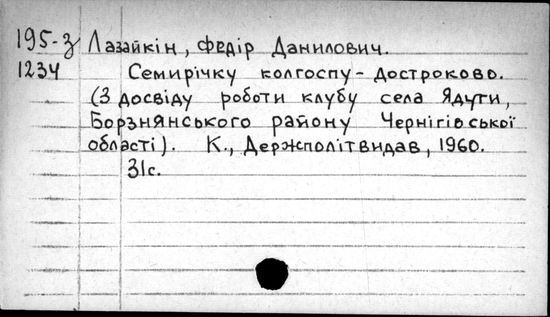 195-з Лазайкін, Федір Данилович.
1234 Семирічку колгоспу - достроково.
(З досвіду роботи клубу села Ядути,
Борзнянського району Чернігівської
області). К., Держполітвидав, 1960.
31с.